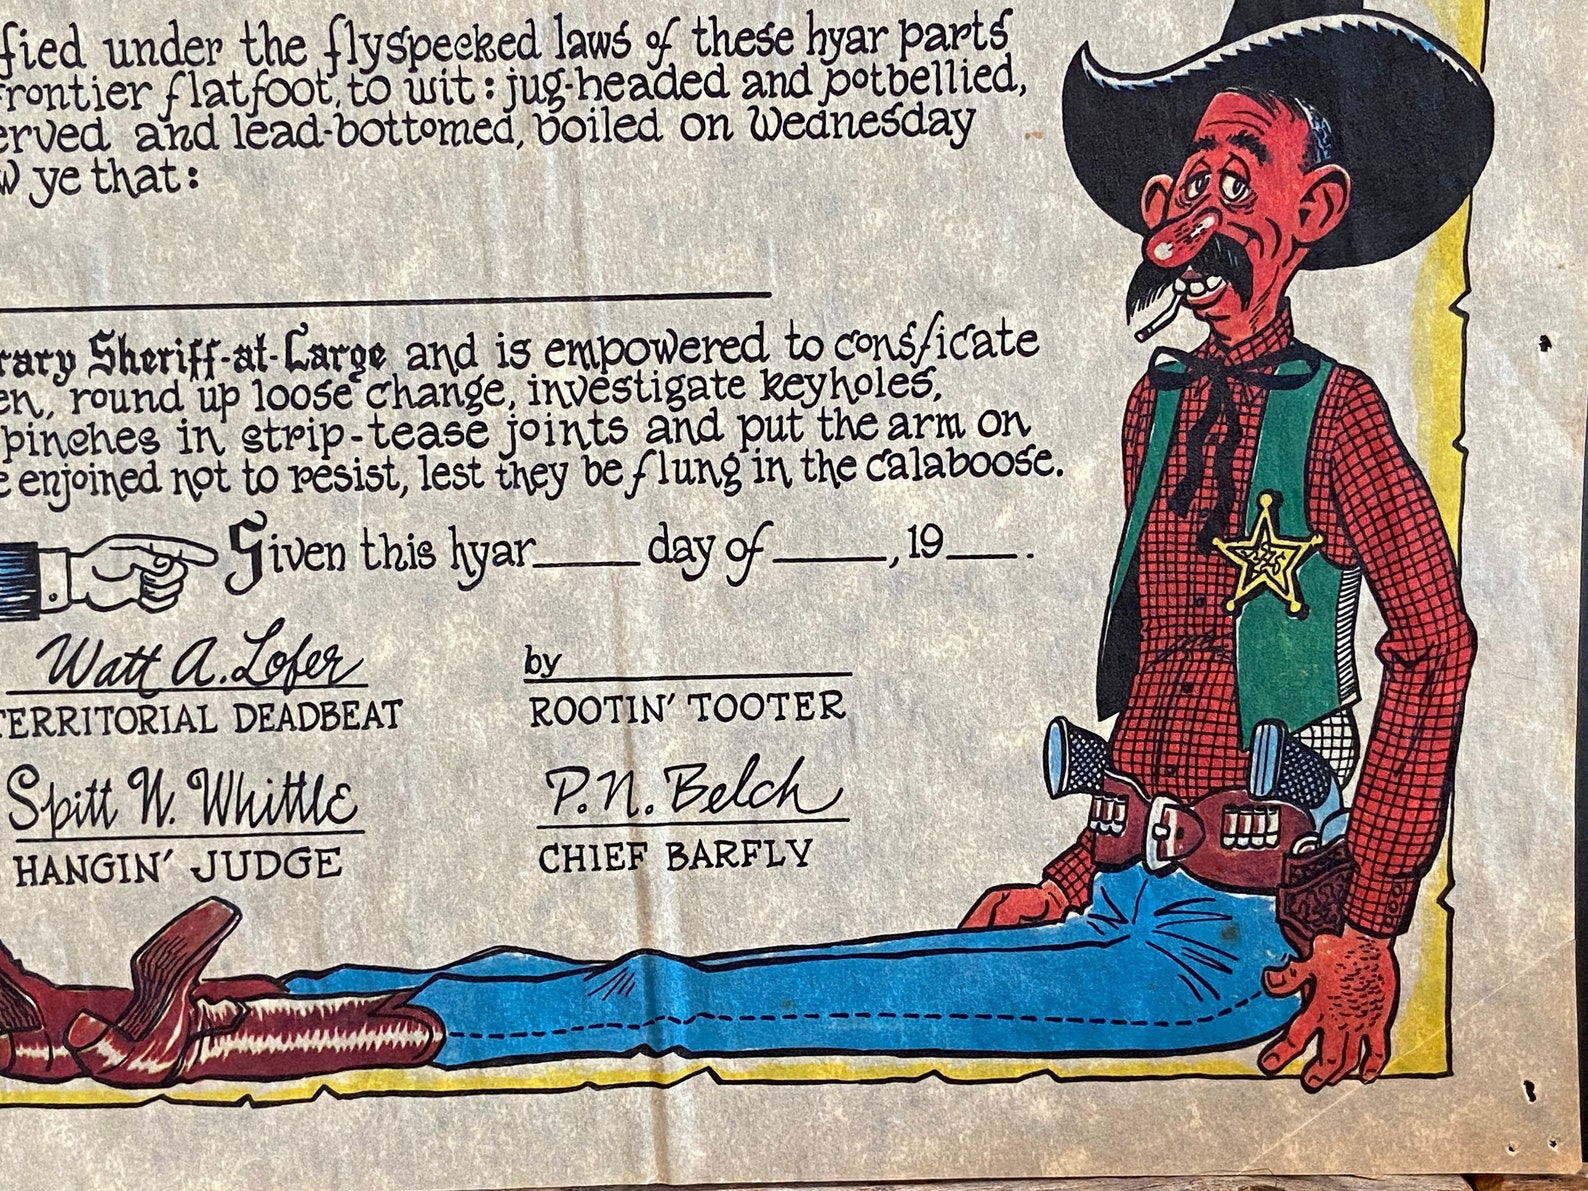 fied under the flyspecked laws of these hyar parts
frontier flatfoot, to wit: jug-headed and potbellied,
erved and lead-bottomed, boiled on Wednesday
w ye that:
rary Sheriff-at-Large and is empowered to consficate
en, round up loose change, investigate keyholes,
pinches in strip-tease joints and put the arm on
e enjoined not to resist, lest they be flung in the calaboose.
Given this hyar____ day of _____, 19___.
Watt A. Lofer
by
TERRITORIAL DEADBEAT
ROOTIN' TOOTER
Spitt N. Whittle
P.N. Belch
HANGIN' JUDGE
CHIEF BARFLY